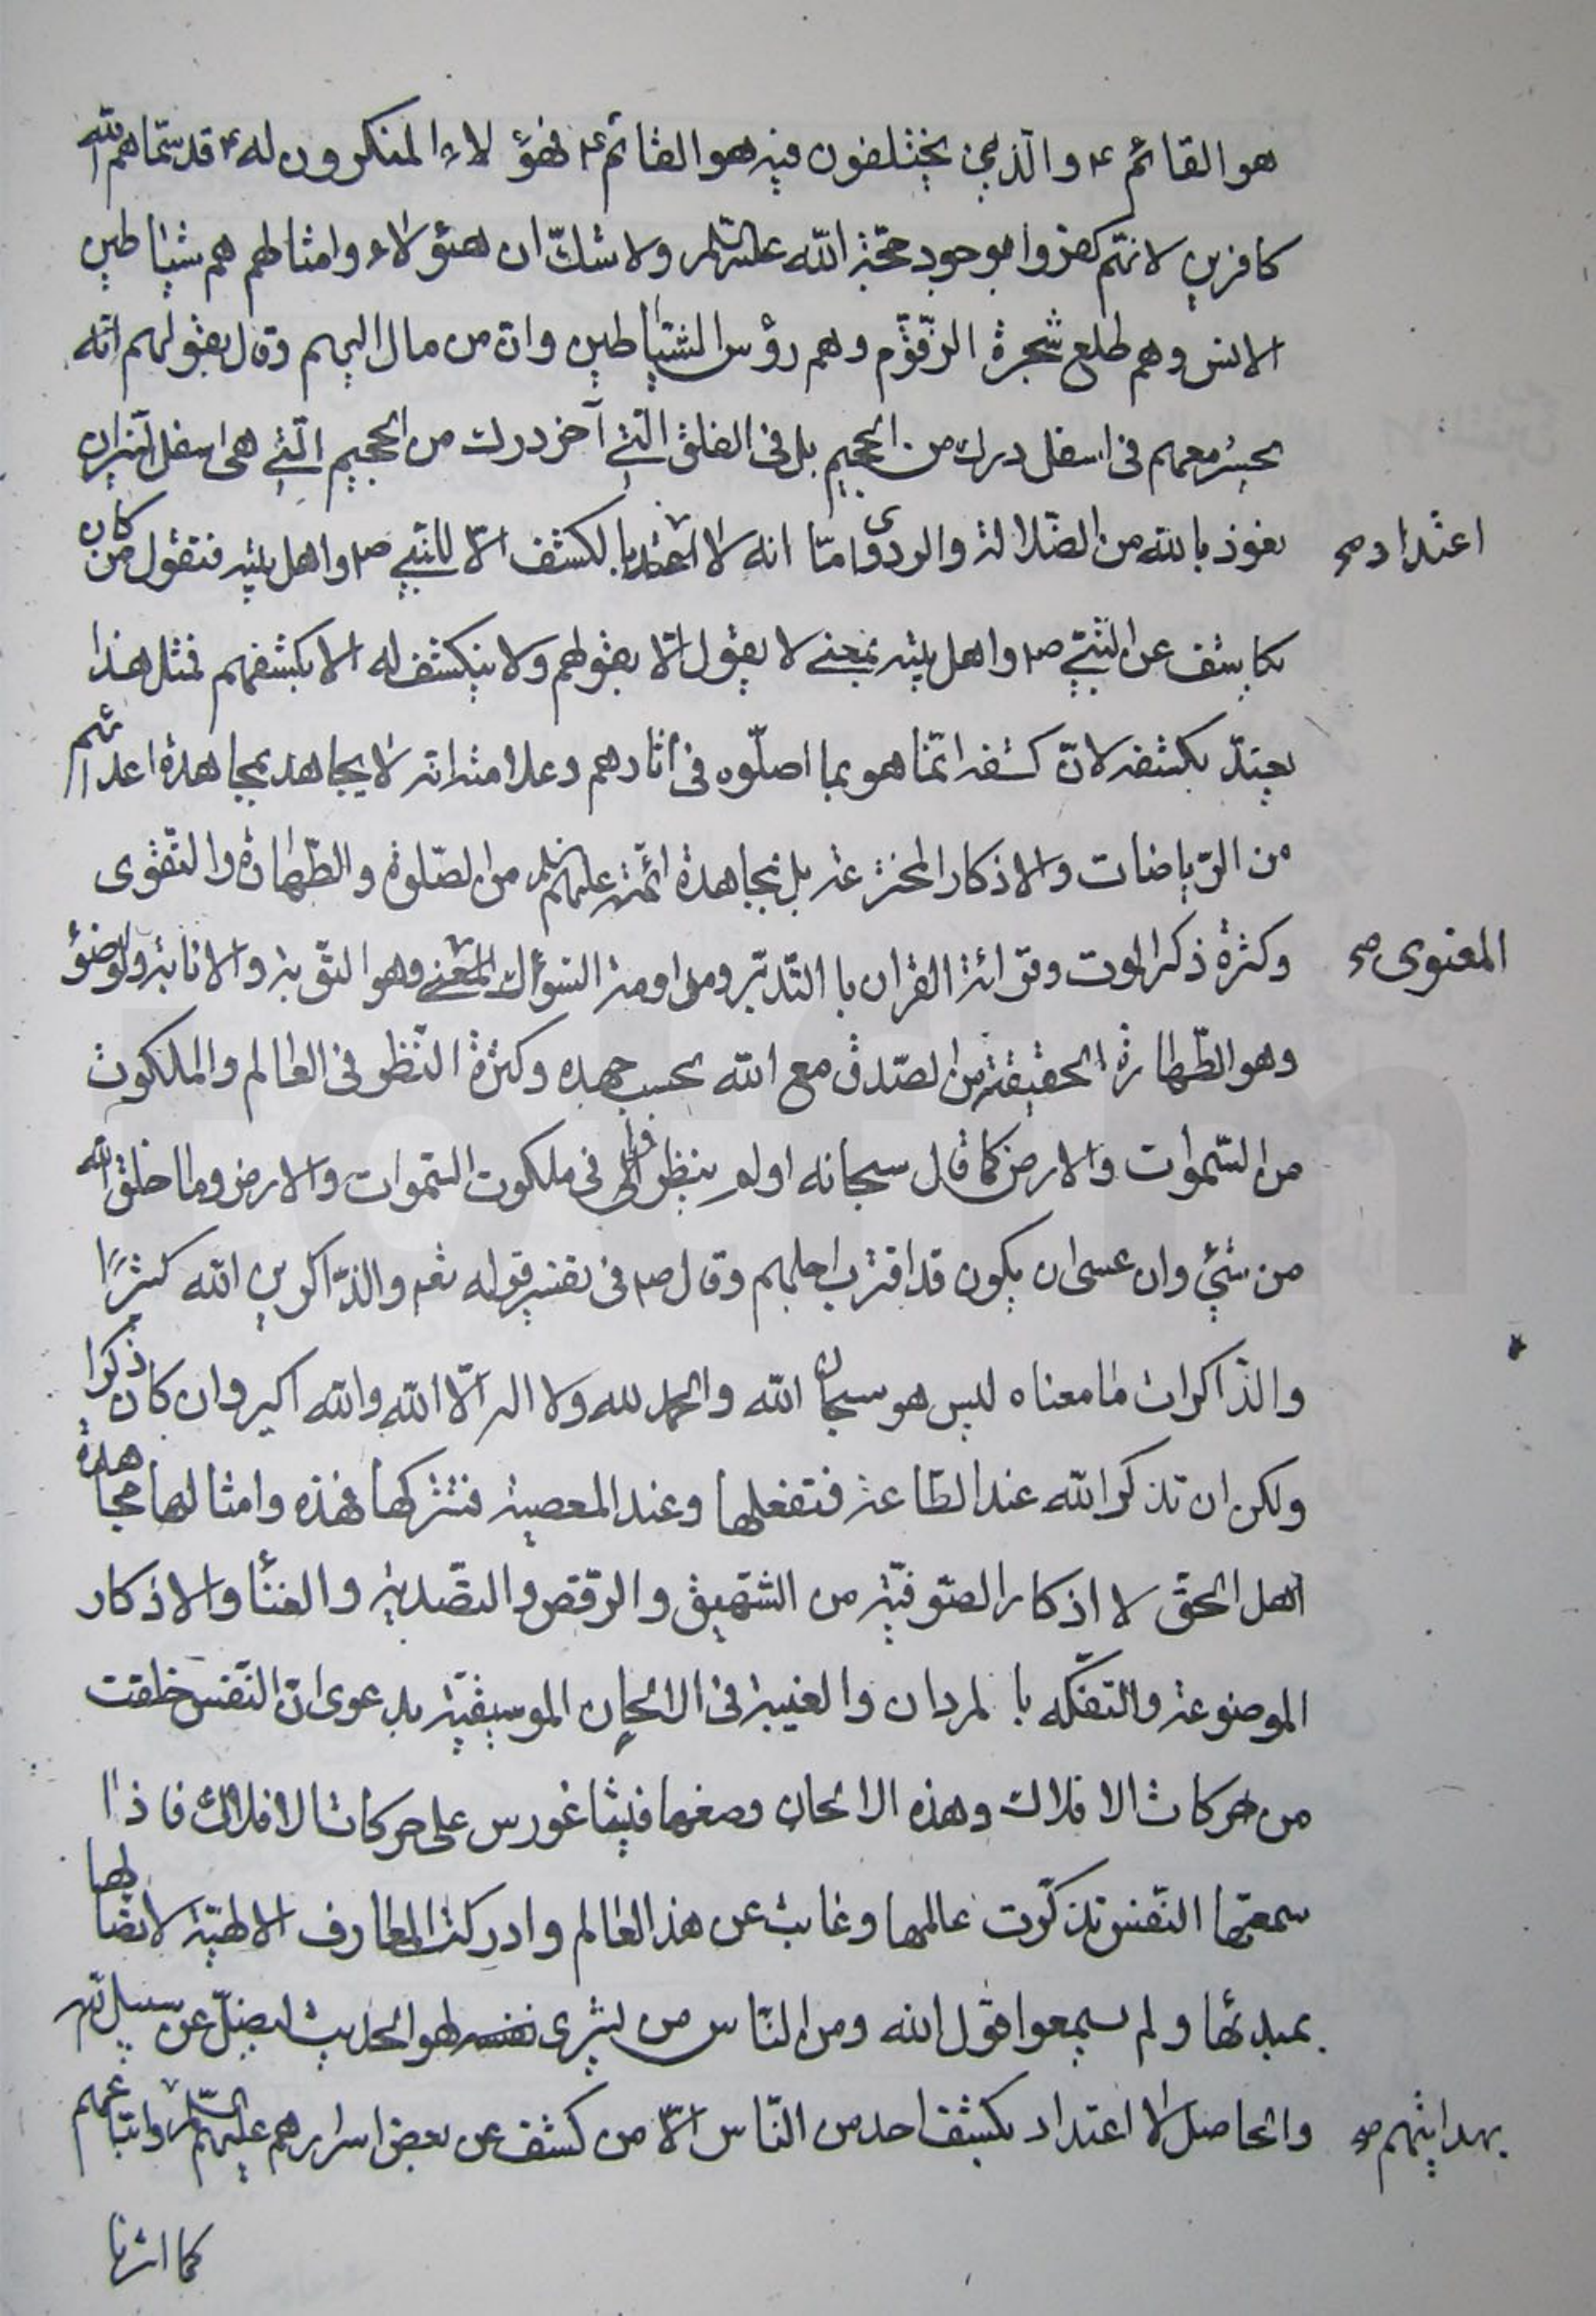 هو القائم ع والذين يختلفون فيه هو القائم ع فهؤلاء المنكرون له ع قد سمّاهم الله
كافرين لانهم كفروا بوجود حجّة الله عليه السلام ولا شكّ ان هؤلاء وامثالهم هم شياطين
الانس وهم طلع شجرة الزقّوم وهم رؤس الشياطين وان من مال اليهم وقال بقولهم انّه
يحشر معهم فى اسفل درك من الجحيم بل فى الفلق الّتى آخر درك من الجحيم الّتى هى اسفل النّيران
نعوذ بالله من الضّلالة والردى وامّا انه لا اعتداد بالكشف الّا للنّبي ص واهل بيته فنقول من كان
اعتداد صح
يكاشف عن النّبيّ ص واهل بيته بمعنى لا يقول الّا بقولهم ولا ينكشف له الا بكشفهم فمثل هذا
يعتدّ بكشفه لانّ كشفه انّما هو بما اصلّوه فى آثارهم وعلامته انه لا يجاهد بمجاهدة اعدائهم
من الرّياضات والاذكار المخترعة بل بمجاهدة ائمّته عليهم السلام من الصّلوة والطّهارة والتّقوى
وكثرة ذكر الموت وقرائة القران با التّدبّر ومداومة السّواك المعنوى وهو التّوبة والانابة والوضوء
المعنوى صح
وهو الطّهارة الحقيقة من الصّدق مع الله بحسب جهده وكثرة النّظر فى العالم والملكوت
من السّموات والارض كما قال سبحانه اولم ينظروا فى ملكوت السّموات والارض وما خلق الله
من شئ وان عسى ان يكون قد اقترب اجلهم وقال ص فى تفسير قوله تعم والذّاكرين الله كثيرًا
والذّاكرات ما معناه ليس هو سبحان الله والحمد لله ولا اله الّا الله والله اكبر وان كان ذكرا
ولكن ان تذكر الله عند الطّاعة فتفعلها وعند المعصية فتتركها فهذه وامثالها مجاهدة
اهل الحقّ لا اذكار الصّوفيّة من الشّهيق والرّقص والتّصدية والغنأ والاذكار
الموضوعة والتفكّه با لمردان والغيبة فى الالحان الموسيقيّة بدعوى انّ النّفس خلقت
من حركات الافلاك وهذه الالحان وضعها فيثاغورس على حركات الافلاك فاذا
سمعتها النّفس تذكّرت عالمها وغابت عن هذا العالم وادركت المعارف الالهيّة لاتّصالها
بمبدئها ولم يسمعوا قول الله ومن النّاس من يشرى لهو الحديث ليضلّ عن سبيل الله
والحاصل لا اعتداد بكشف احد من النّاس الّا من كشف عن بعض اسرارهم عليهم السّلام واتباعهم
بهدايتهم صح
كما اشرنا